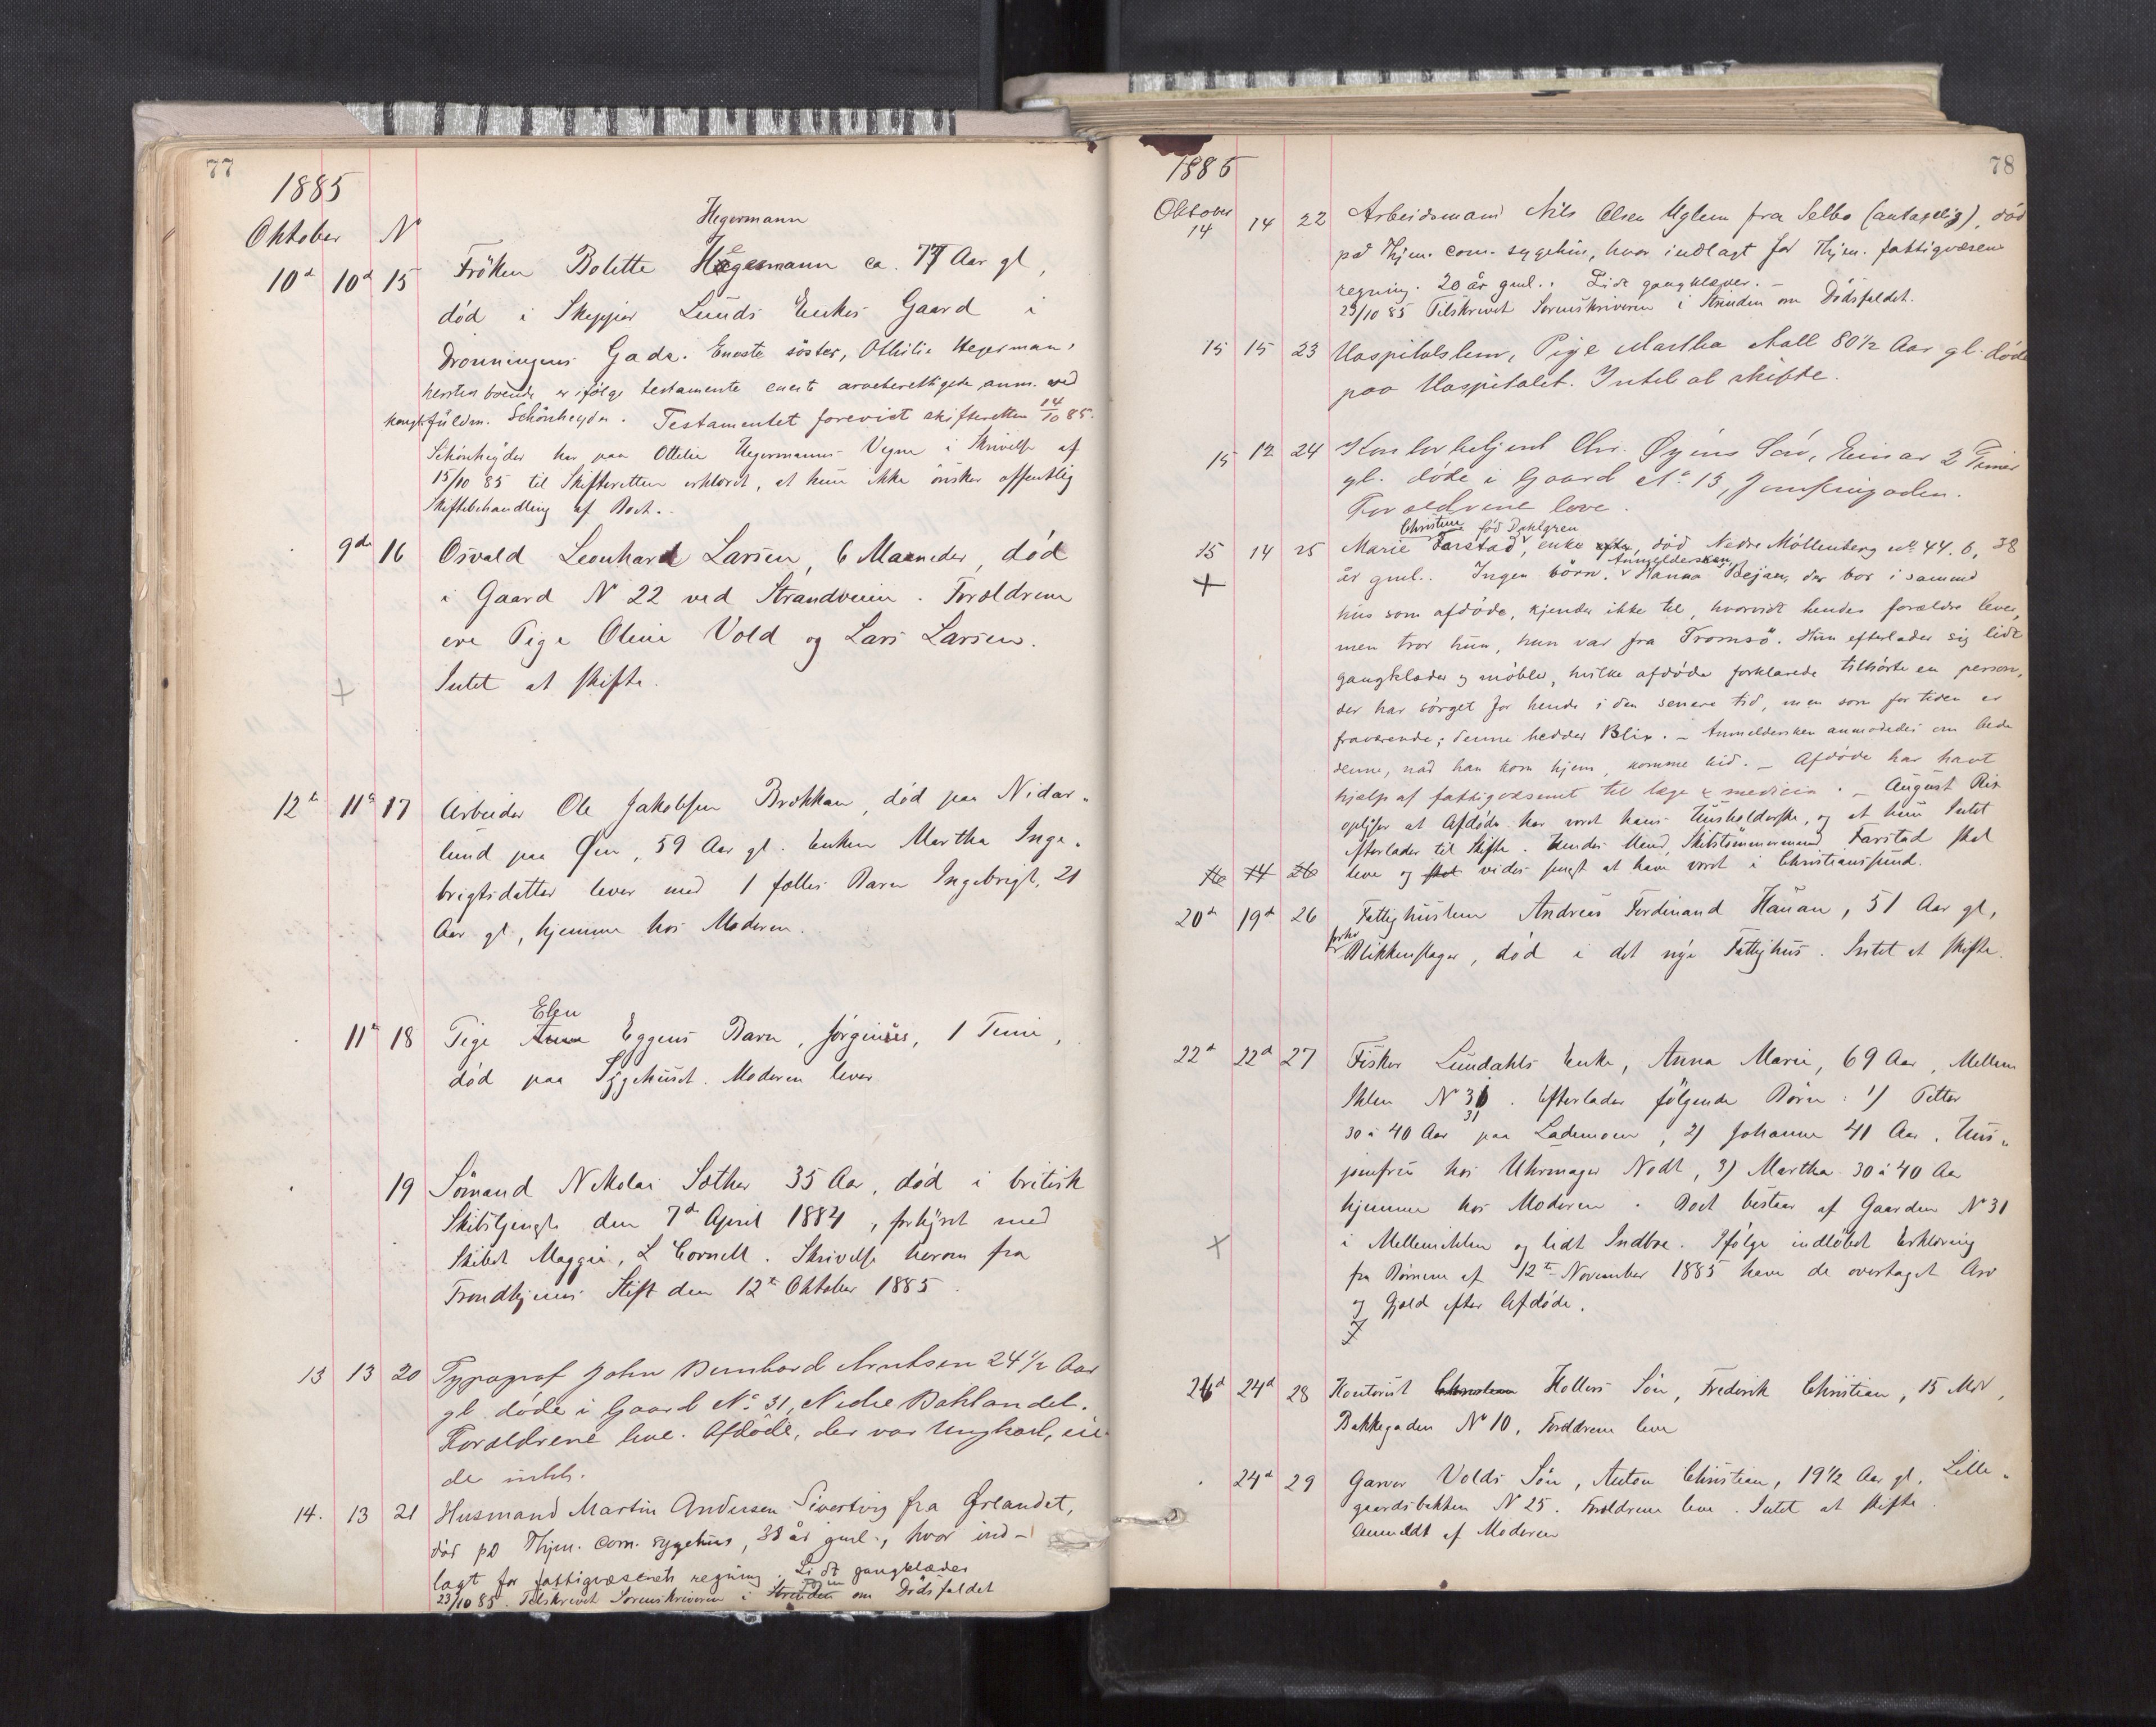 77
1885
Oktober N
Hegermann
10d 10d 15 Fröken Bolette Hegermann ca. 77 Aar gl,
död i Skipper Lunds Enkes Gaard i
Dronningens Gade. Eneste söster, Othilie Hegerman,
hersteds boende er ifölge testamente eneste arveberettigede, anm. ved
fuldm. Schönheyder. Testamentet forevist skifteretten 14/10 85.
Schönheyder har paa Ottilie Hegermanns Vegne i Skrivelse af
15/10 85 til Skifteretten erklæret, at hun ikke önsker offentlig
Skiftebehandling af Boet.
9de 16 Osvald Leonhard Larsen, 6 Maaneder, död
i Gaard N 22 ved Strandveien. Forældrene
ere Pige Oline Vold og Lars Larsen.
Intet at skifte.
12te 11te 17 Arbeider Ole Jakobsen Brækkan, död paa Nidar-
lund paa Øen, 59 Aar gl. Enken Martha Inge-
brigtsdatter lever med 1 fælles Barn Ingebrigt, 21
Aar gl, hjemme hos Moderen.
Elen
11te 18 Pige Anne Eggens Barn, Jörginus, 1 Time,
död paa Sygehuset. Moderen lever
19 Sömand Nikolai Sæther 35 Aar, död i britisk
Skibstjeneste den 7de April 1884, forhyret med
Skibet Maggie, L Cornell. Skrivelse herom fra
Trondhjems Stift den 12te Oktober 1885.
13 13 20 Typograf John Bernhard Arntsen 24 1/2 Aar
gl. döde i Gaard No 31, Nedre Baklandet.
Forældrene leve. Afdöde, der var Ungkarl, ei-
de intet.
14. 13 21 Husmand Martin Andersen Sivertvig fra Ørlandet,
död på Thjm. com. sygehus, 38 år gml., hvor ind-
lagt for fattigvæsenets regning. Lidt gangklæder
23/10 85. Tilskrevet Sorenskriveren i Strinden om Dödsfaldet
78
1885
Oktober
14 14 22 Arbeidsmand Nils Olsen Uglem fra Selbo (antagelig), död
på Thjm. com. sygehus, hvor indlagt for Thjm. fattigvæsens
regning. 20 år gml. Lidt gangklæder. -
23/10 85 Tilskrevet Sorenskriveren i Strinden om Dödsfaldet.
15 15 23 Hospitalslem, Pige Martha Moll 80 1/2 Aar gl. döde
paa Hospitalet. Intet at skifte.
15 12 24 Kontorbetjent Chr. Øyens Sön, Einar 2 Timer
gl. döde i Gaard No 13, Jomfrugaden.
Forældrene leve.
Christine född Dahlgren
15 14 25 Marie Farstad, enke efter, död Nedre Möllenberg No 44. b, 38
Anmeldersken
år gml. Ingen börn. Hanna Bejan, der bor i samme
hus som afdöde, kjender ikke til, hvorvidt hendes forældre lever,
men tror hun, hun var fra Tromsö. Hun efterlader sig lidt
gangklæder og möbler, hvilke afdöde forklarede tilhörte en person,
der har sörget for hende i den senere tid, men som for tiden er
fraværende; denne hedder Blix. - Anmeldersken anmodedes om bede
denne, når han kom hjem, komme hid. - Afdöde har havt
hjælp af fattigvæsenet til læge & medicin. - August Rix
oplyser at Afdöde har været hans Husholderske, og at hun Intet
efterlader til Skifte. Hendes Mand, Skibstömmermand Farstad skal
16 14 26 leve og skal vides sengst at have været i Christianssund.
20de 19de 26 Fattighuslem Andreas Ferdinand Hauan, 51 Aar gl,
forhv
Blikkenslager, död i det nye Fattighus. Intet at skifte.
22de 22de 27 Fisker Lundahls Enke, Anna Marie, 69 Aar, Mellem
Ihlen No 31. Efterlader fölgende Börn: 1) Petter
31
30 à 40 Aar paa Lademoen, 2) Johanne 41 Aar, Hus-
jomfru hos Uhrmager Nodt, 3) Martha 30 à 40 Aar
hjemme hos Moderen. Boet bestaar af Gaarden No 31
i Mellemihlen og lidt Indbo. Ifölge indlöbet Erklæring
fra Börnene af 12te November 1885 have de overtaget Arv
og Gjæld efter Afdöde.
26de 24de 28 Kontorist Christian Hollers Sön, Frederik Christian, 15 Mdr,
Bakkegaden No 10. Forældrene leve
24de 29 Garver Volds Sön, Anton Christian, 19 1/2 Aar gl. Lille-
gaardsbakken N 25. Forældrene leve. Intet at skifte.
Anmeldt af Moderen